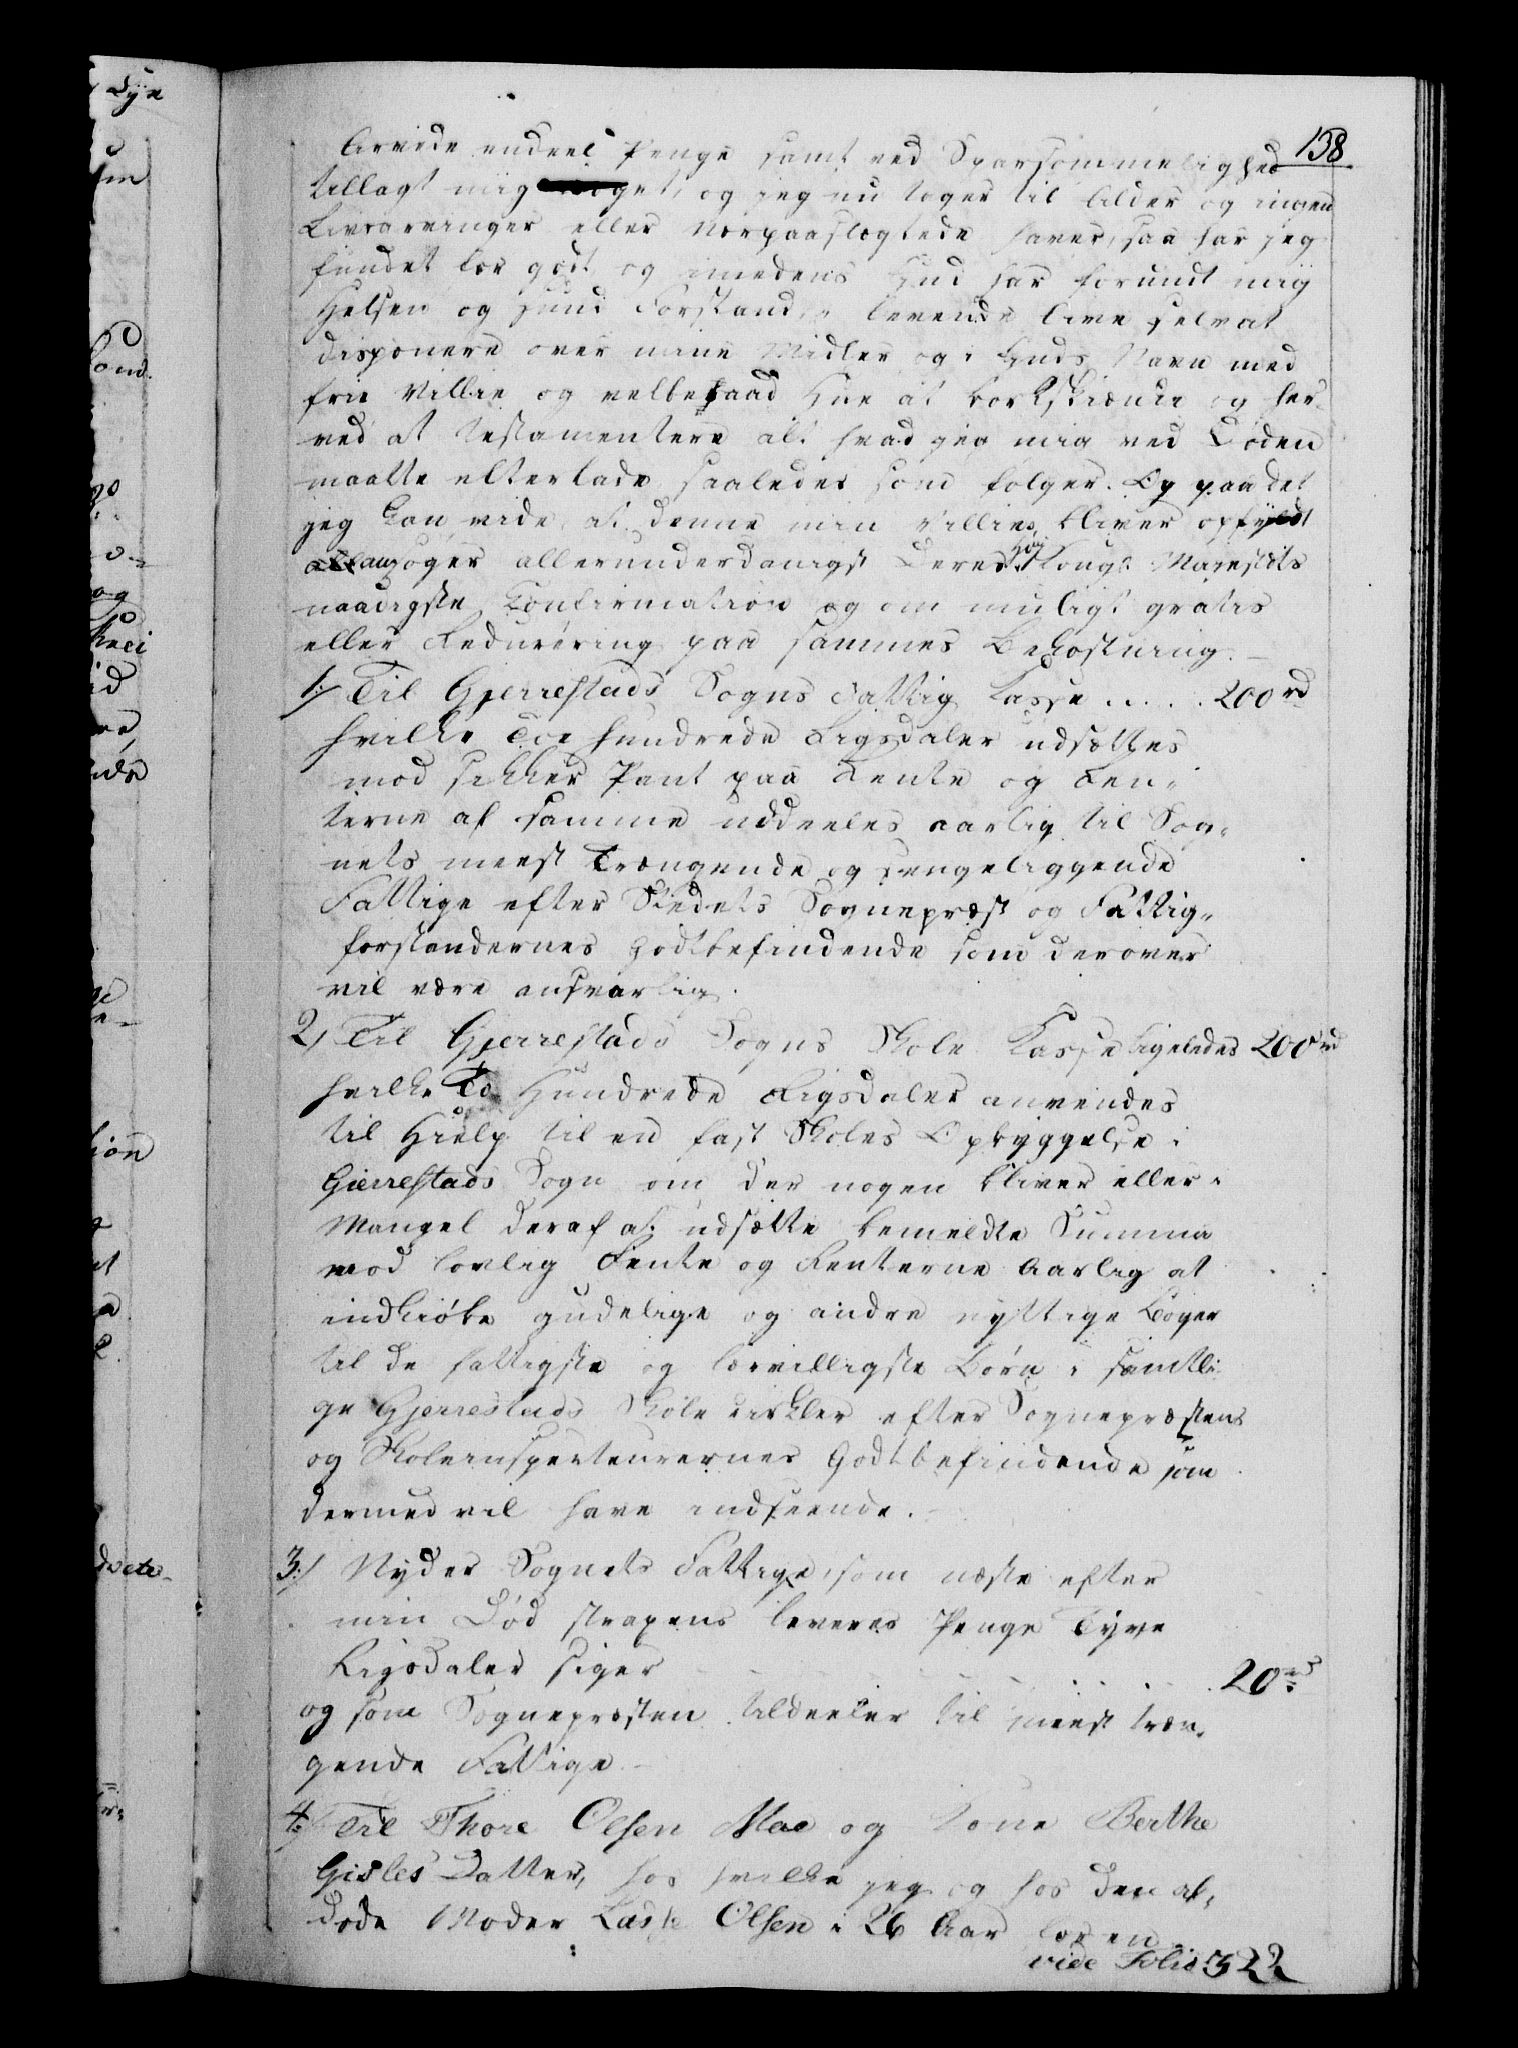 138
Arvede endeel Penge samt ved Sparsommelighed
tillagt mig noget, og jeg nu tager til Alder og ingen
Livsarvinger eller Nærpaaslægtede haver, saa har jeg
fundet for godt og imedens Gud har forundt mig
Helsen og sund Forstand, i levende live selv at
disponere over mine Midler og i Guds Navn med
frie Villie og velberaad Hue at bortskienke og her-
ved at testamentere alt hvad jeg mig ved Døden
maatte efterlade saaledes som følger. Og paa det
jeg kan vide, at denne min Villie bliver opfyldt
ansøger allerunderdanigst Deres Høi Kongl: Majestæts
naadigste Confirmation og om muligt gratis
eller Reducering paa sammes Bekostning. —
1:/ Til Gjerrestads Sogns Fattig Casse . . . . . 200 rd
hvilke Toe hundrede Rigsdaler udsættes
mod sikker Pant paa Rente og Ren-
terne af samme uddeeles aarlig til Sog-
nets meest Trængende og sengeliggende
Fattige efter Stedets Sognepræst og Fattig-
forstandernes Godtbefindende som derover
vil være ansvarlig.
2/ Til Gjerrestads Sogns Skole Kasse ligeledes 200 rd
hvilke To Hundrede Rigsdaler anvendes
til Hielp til en fast Skoles Opbyggelse i
Gierrestads Sogn om der nogen bliver eller i
Mangel deraf at udsætte bemeldte Summa
mod lovlig Rente og Renterne Aarlig at
indkiøbe gudelige og andre nyttige Bøger
til de fattigste og lærvilligste Børn i samtli-
ge Gjerrestads Skole cirkler efter Sognepræstens
og Skoleinspecteurernes Godtbefindende som
dermed vil have indseende. —
3:/ Nyder Sognets Fattige, som næste efter
min Død strapens leveres Penge Tyve
Rigsdaler siger . . . . . 20 rd
og som Sognepræsten tildeeler til meest træn-
gende Fattige. —
4:/ Til Thore Olsen Moe og Kone Berthe
Gisles Datter, hos hvilke jeg og hos den af-
døde Moder Olsen i 26 Aar
vide Folio 322